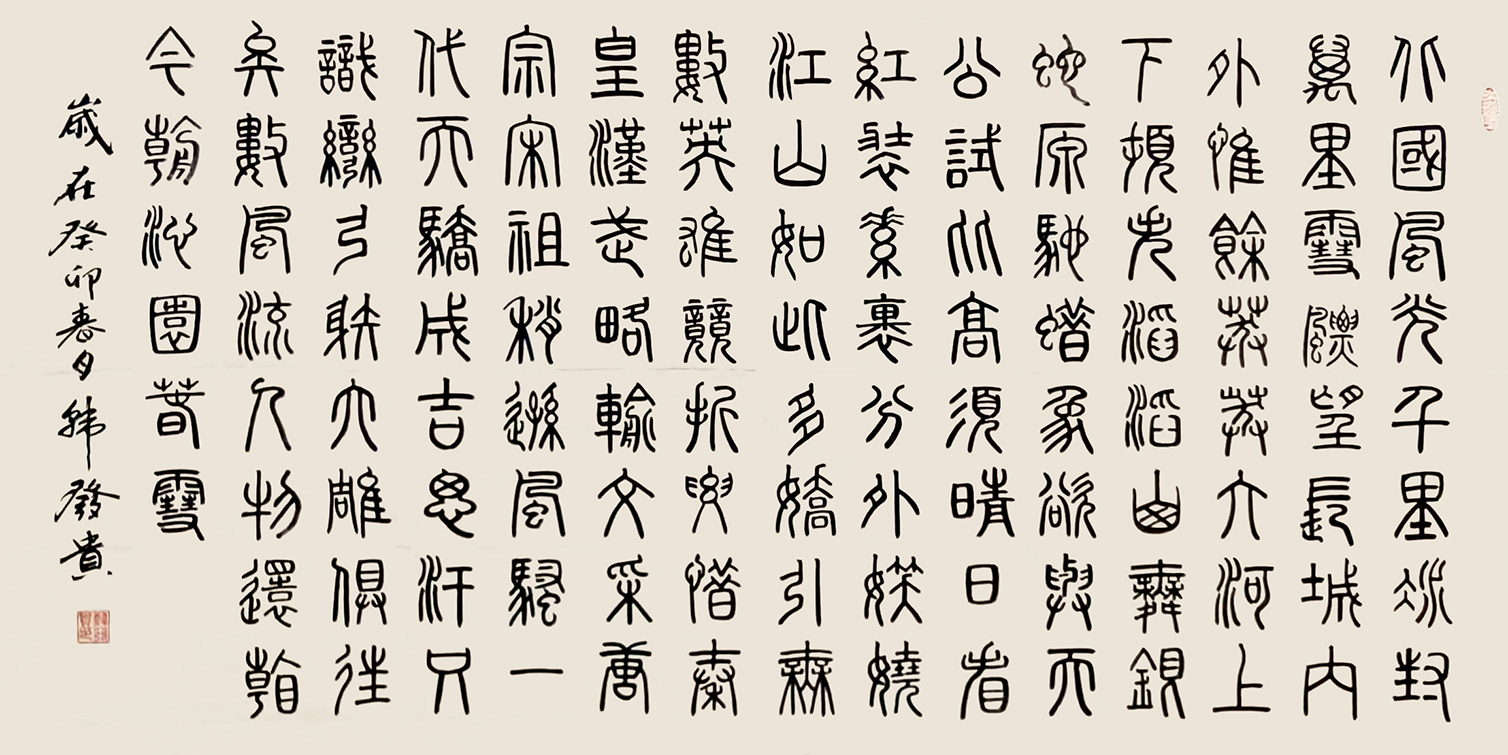 北國風光千里冰封
萬里雪飄望長城內
外惟餘莽莽大河上
下頓失滔滔山舞銀
蛇原馳蜡象欲與天
公試比高須晴日看
紅裝素裹分外妖嬈
江山如此多嬌引無
數英雄競折腰惜秦
皇漢武略輸文采唐
宗宋祖稍遜風騷一
代天驕成吉思汗只
識彎弓射大雕俱往
矣數風流人物還看
今朝沁園春雪
歲在癸卯春夕韓發貴